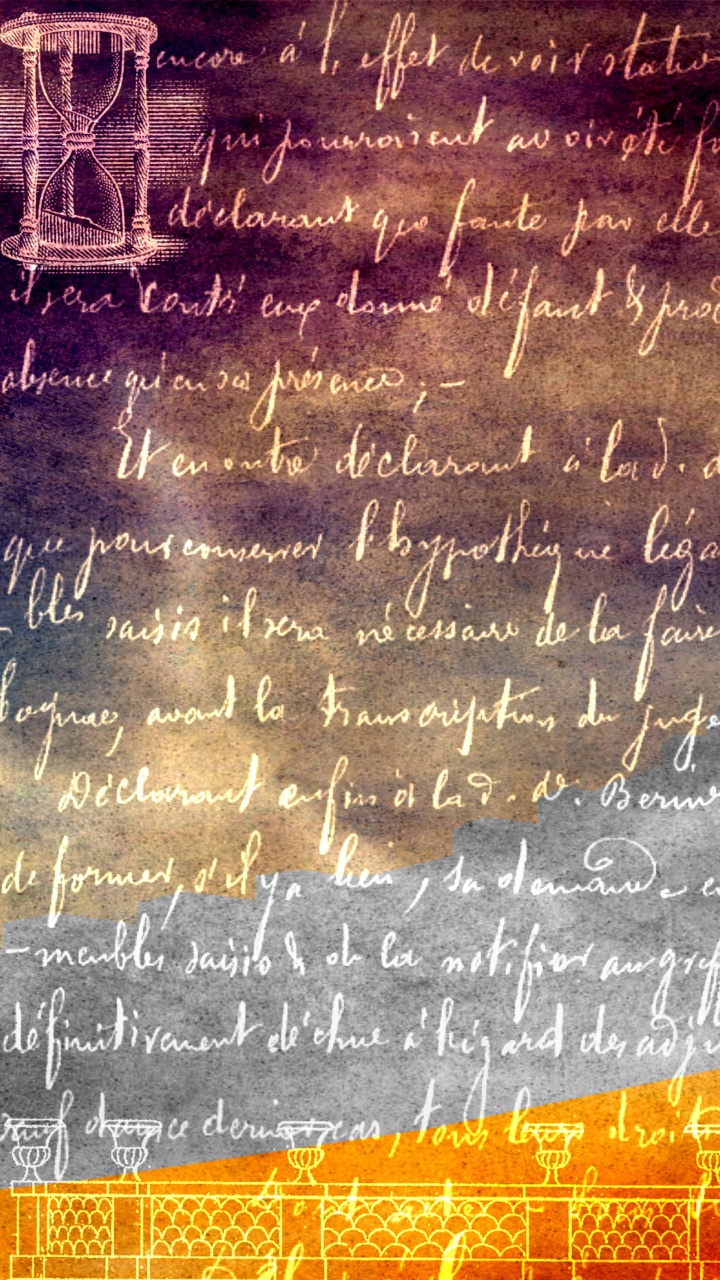 encore à l'effet de voir statu
qui pourroient avoir été f
déclarant que faute par elle
il sera contr' eux donné défaut & pro
absence qu'en sa présence ; —
Et en outre déclarant à la d. d
que pour conserver l'hypothèque léga
-bles saisis il sera nécessaire de la faire
avant la transcription du juge
Déclarant enfin à la d. de.
de former, s'il y a lieu, sa demande e
-meubles saisis & de la notifier au gref
définitivement déchue à l'égard des adj
sauf dans ce dernier cas, tous leurs droit